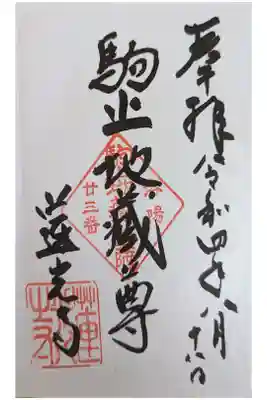 奉拝 令和四年八月十八日
駒止地蔵尊
廿三番
蓮光寺